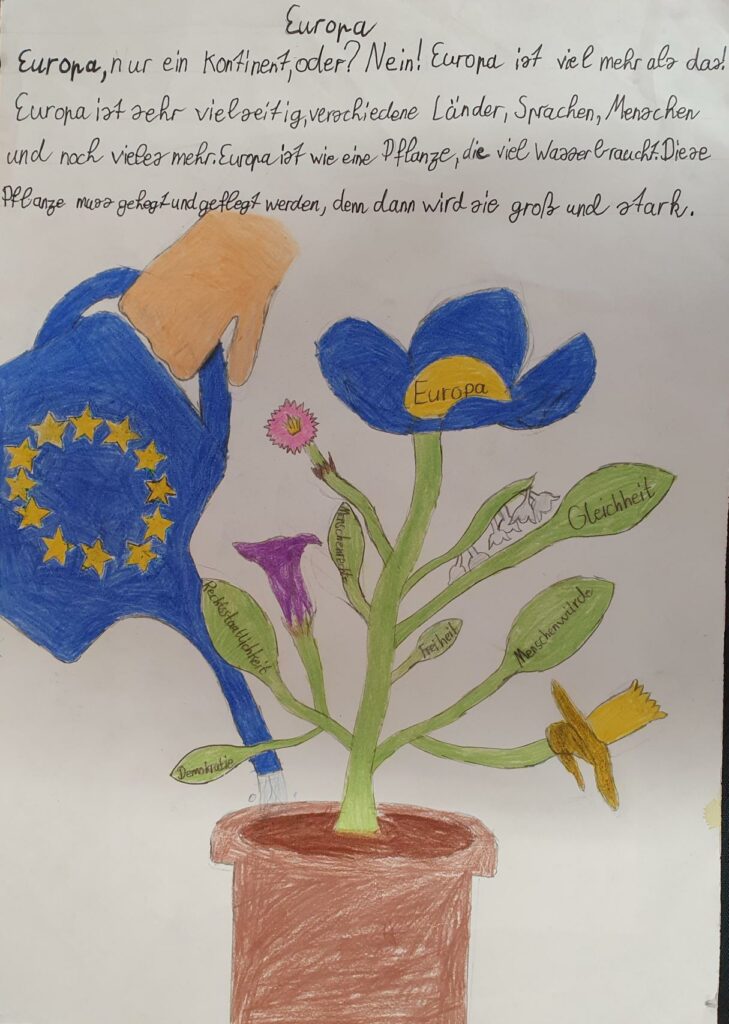 Europa
Europa, nur ein Kontinent, oder? Nein! Europa ist viel mehr als das!
Europa ist sehr vielseitig, verschiedene Länder, Sprachen, Menschen
und noch vieles mehr. Europa ist wie eine Pflanze, die viel Wasser braucht. Diese
Pflanze muss gehegt und geflegt werden, denn dann wird sie groß und stark.
Europa
Gleichheit
Menschenrechte
Rechtsstaatlichkeit
Freiheit
Menschenwürde
Demokratie